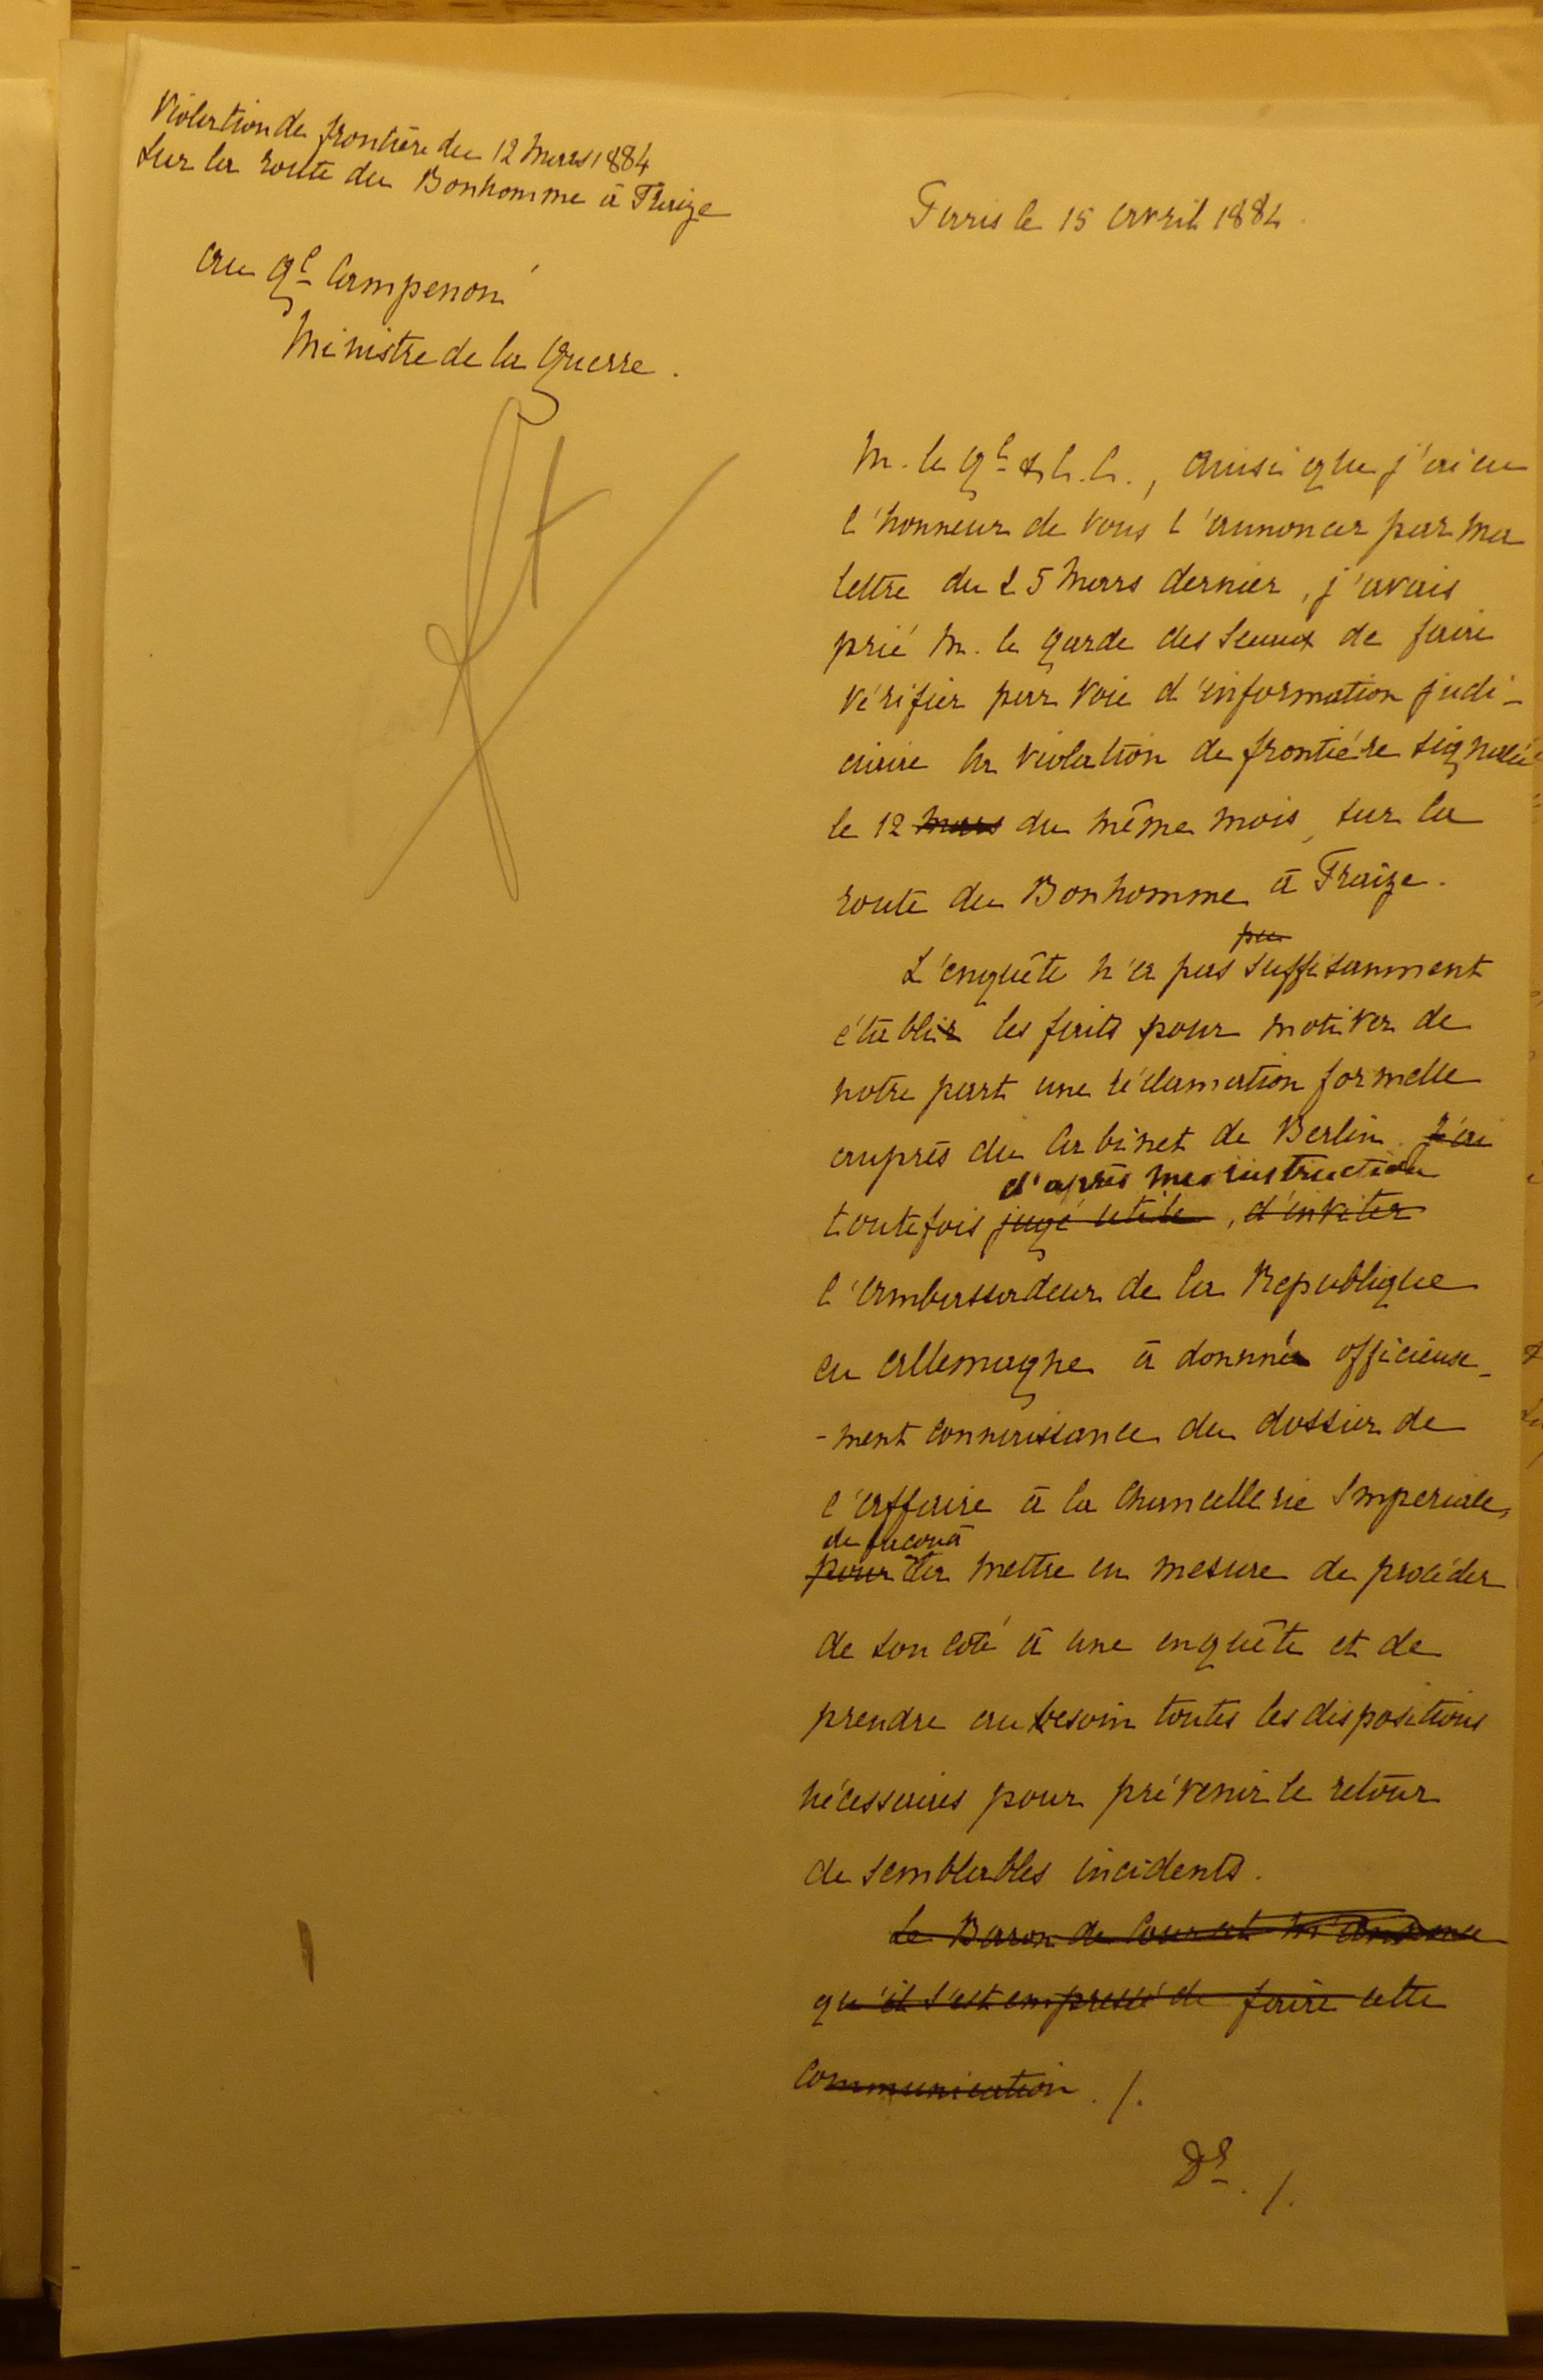 Violation de frontière du 12 Mars 1884
sur la route du Bonhomme à Fraize
au Gl Campenon
Ministre de la Guerre.
Paris le 15 avril 1884
M. le Gl & h. C., ainsi que j'ai eu
l'honneur de vous l'annoncer par ma
lettre du 25 Mars dernier, j'avais
prié M. le Garde des Sceaux de faire
vérifier par voie d'information judi-
ciaire la violation de frontière signalée
le 12 Mars du même mois, sur la
route du Bonhomme à Fraize.
pu
L'enquête n'a pas suffisamment
établir les faits pour motiver de
notre part une réclamation formelle
auprès du Cabinet de Berlin. J'ai
d'après mes instruction
toutefois jugé utile, d'inviter
l'ambassadeur de la Republique
en Allemagne à donné officieuse-
-ment connaissance du dossier de
l'affaire à la Chancellerie Imperiale,
de façon à
pour la mettre en mesure de procéder
de son coté à une enquête et de
prendre au besoin toutes les dispositions
nécessaires pour prévenir le retour
de semblables incidents.
Le Baron de Courcel
qu'il s'est empressé de faire cette
communication ./.